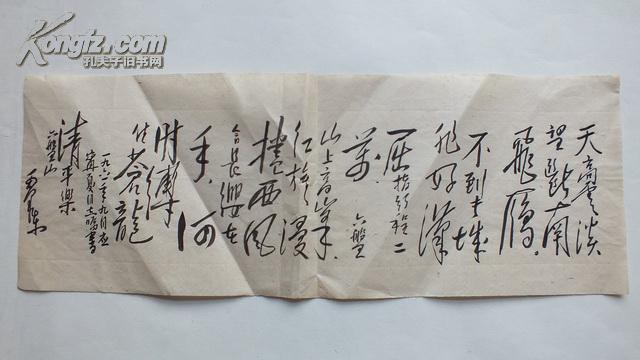 Kongfz.com
孔夫子旧书网
天高云淡
望断南
飞雁。
不到长城
非好汉
屈指行程二
万。六盘
山上高峰
红旗漫
捲西风
今日长缨在
手。何
时缚
住苍龙
一九六一年九月
宁夏日
书
清平乐
六盘山
毛泽东